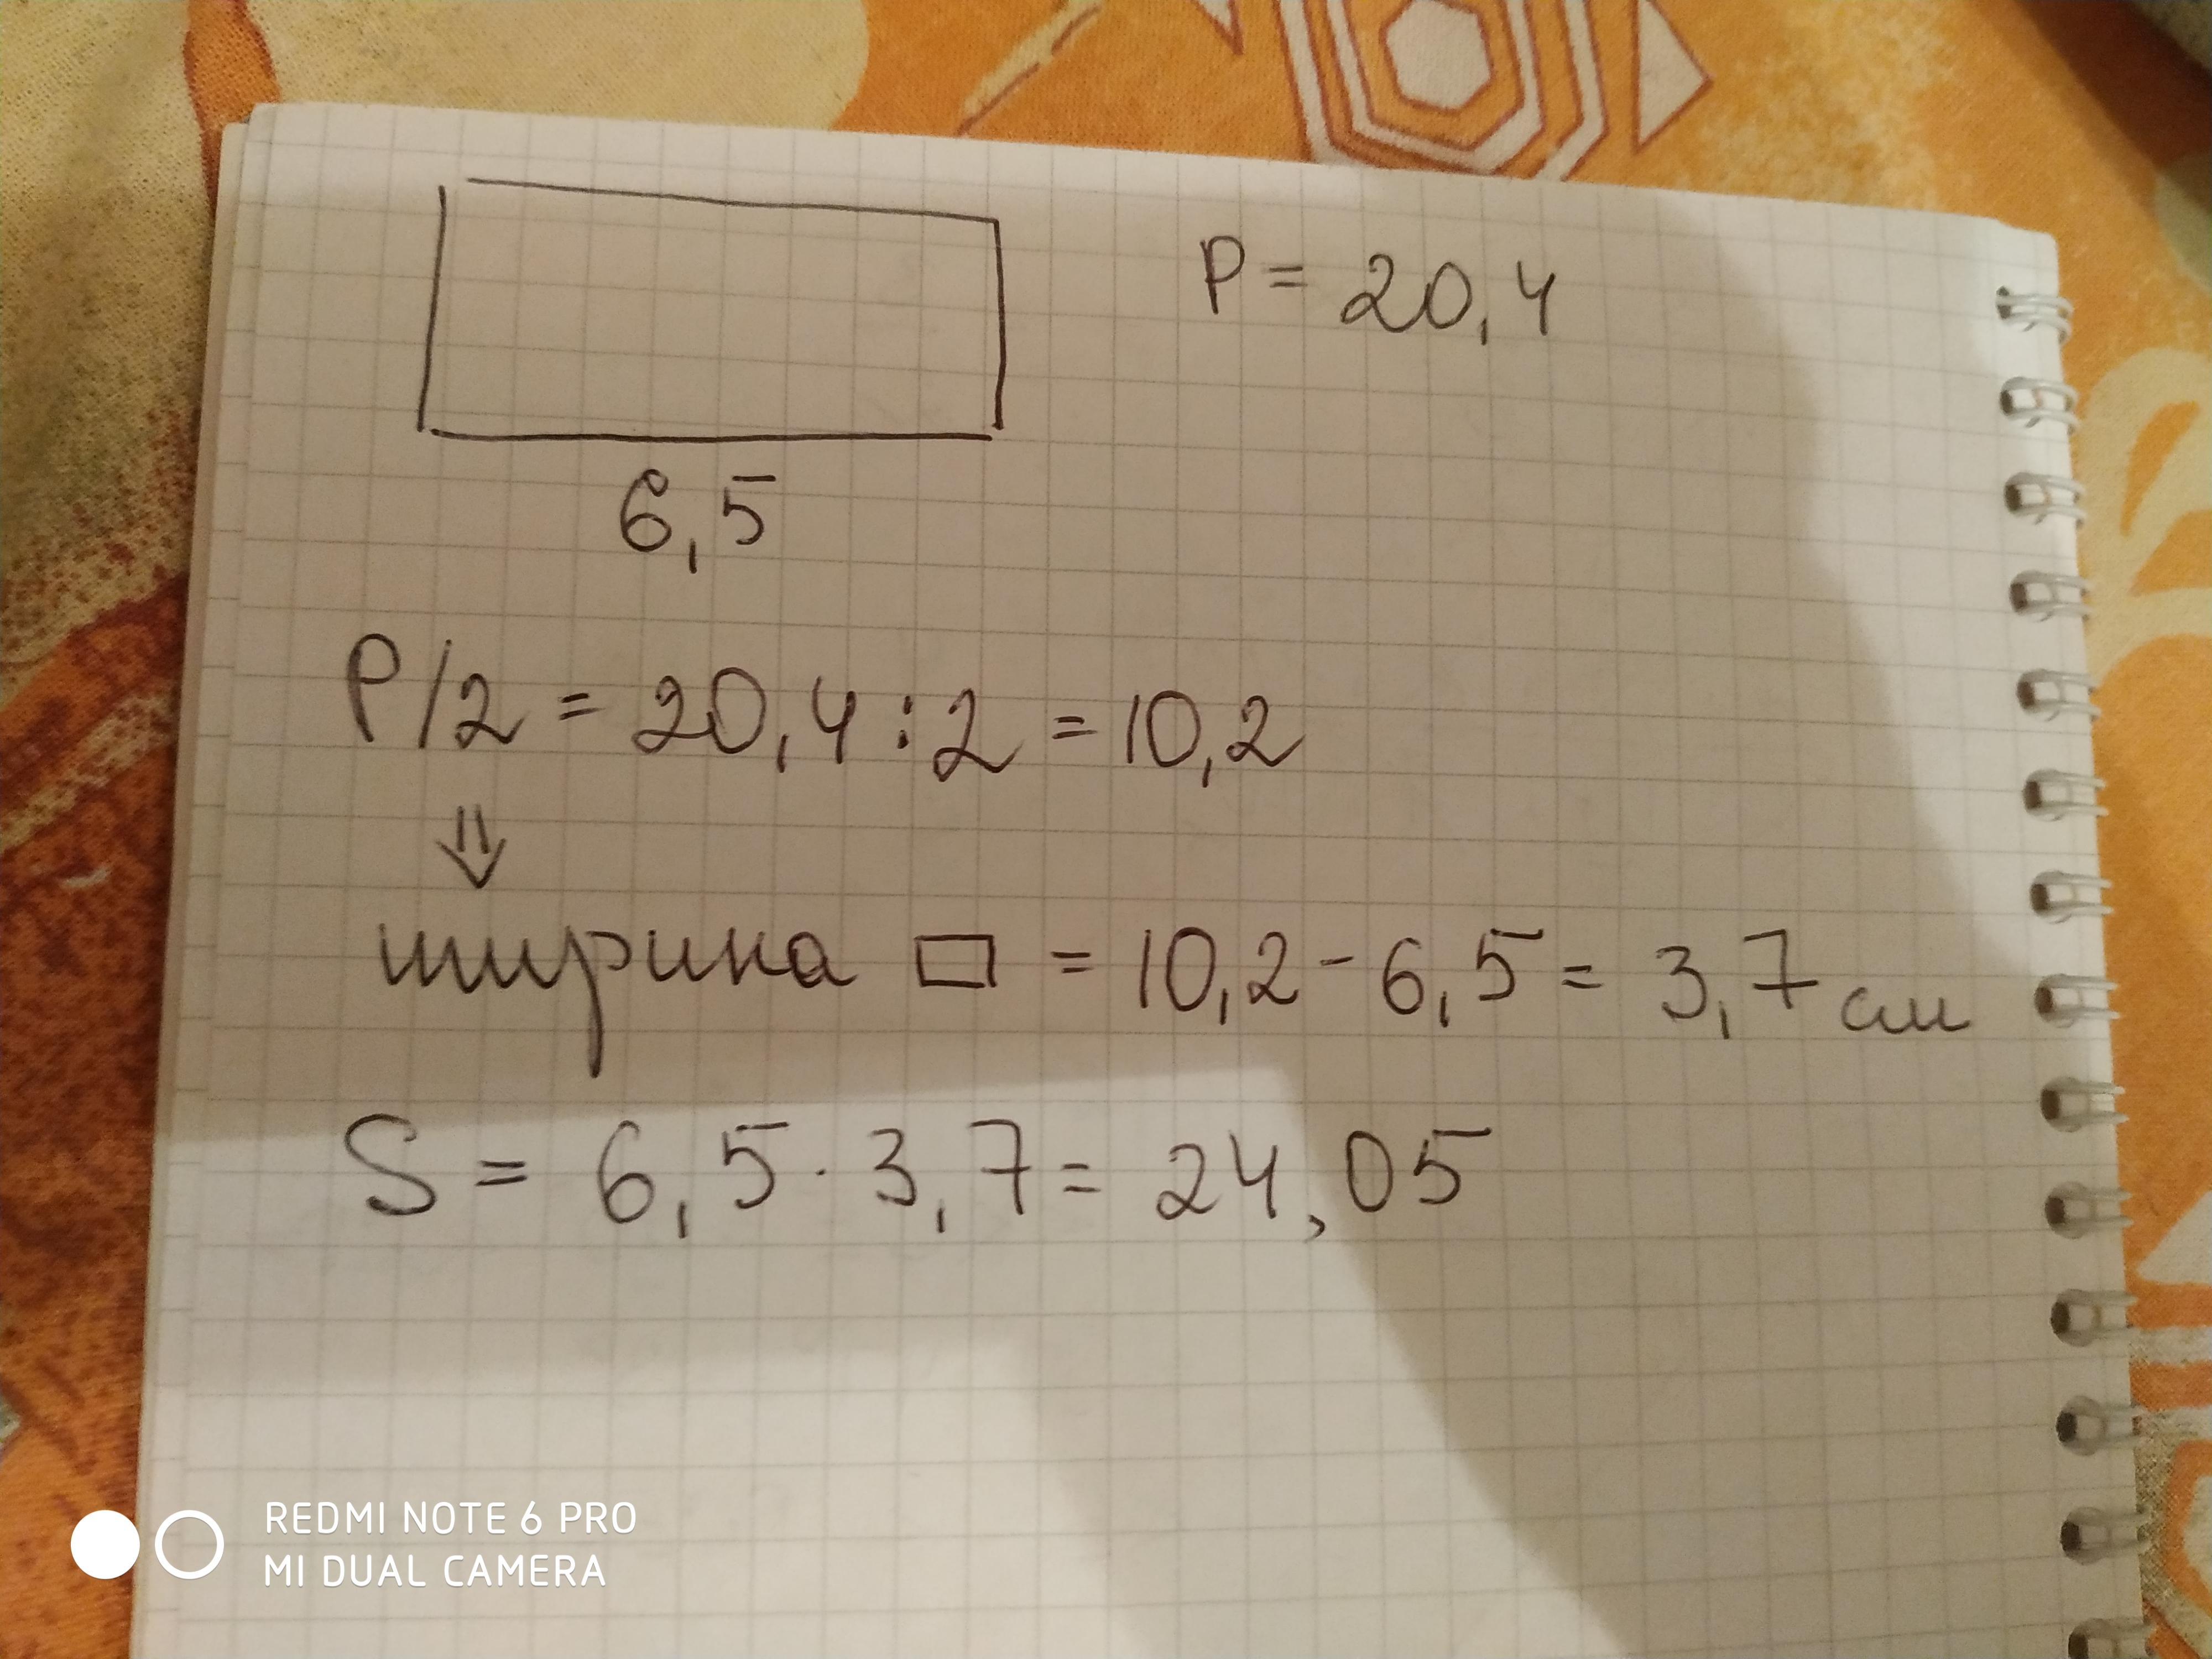 P = 20,4
6,5
P/2 = 20,4 : 2 = 10,2
⇓
ширина ▭ = 10,2 - 6,5 = 3,7 см
S = 6,5 · 3,7 = 24,05
REDMI NOTE 6 PRO
MI DUAL CAMERA